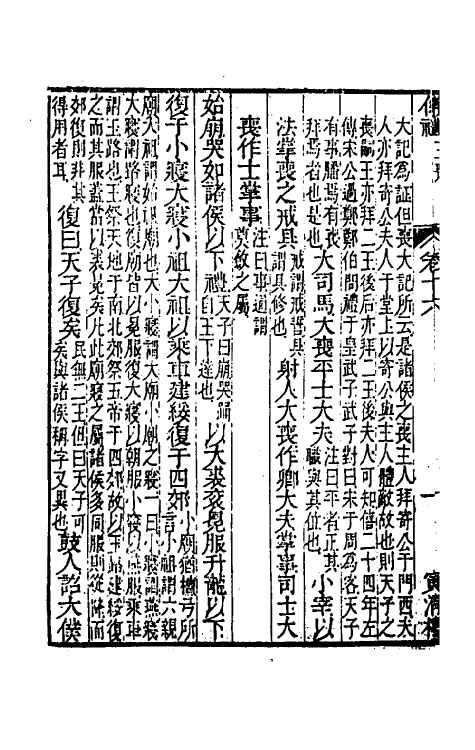 大記爲証但喪大記所云是諸侯之喪主人拜寄公于門西夫
人亦拜寄公夫人于堂上以寄公與主人體敵故也則天子之
喪嗣王亦拜二王後亦拜二王後夫人可知僖二十四年左
傳宋公過鄭鄭伯問禮于皇武子武子對曰宋于周爲客天子
有事膰焉有喪
拜焉者也是也
大司馬大喪平士大夫
注曰平者正其
職與其位也
小宰以
法掌喪之戒具
戒謂戒誓具
謂具修也
射人大喪作卿大夫掌事司士大
喪作士掌事
注曰事謂
奠斂之屬
始崩哭如諸侯以下禮
天子曰崩哭
自王下達也
以大裘袞冕服升龍以下
復于小寢大寢小祖大祖以乘車建綏復于四郊
小廟
言小祖謂六親
廟大祖謂始祖廟也大小寢謂大廟小廟之寢一曰小寢謂燕寢
大寢謂路寢也復廟皆以冕服復大寢以朝服小寢以服乘車
謂玉路也王祭天地于南北郊祭五帝于四郊故以玉路建綏復
之而其服蓋當以裘冕矣凡此廟寢之屬諸侯多同服則從降而
郊復則非其
得用者耳
復曰天子復矣
民無二王但曰天子可
矣與諸侯稱字又異也
鼓人詔大僕
卷十六
一